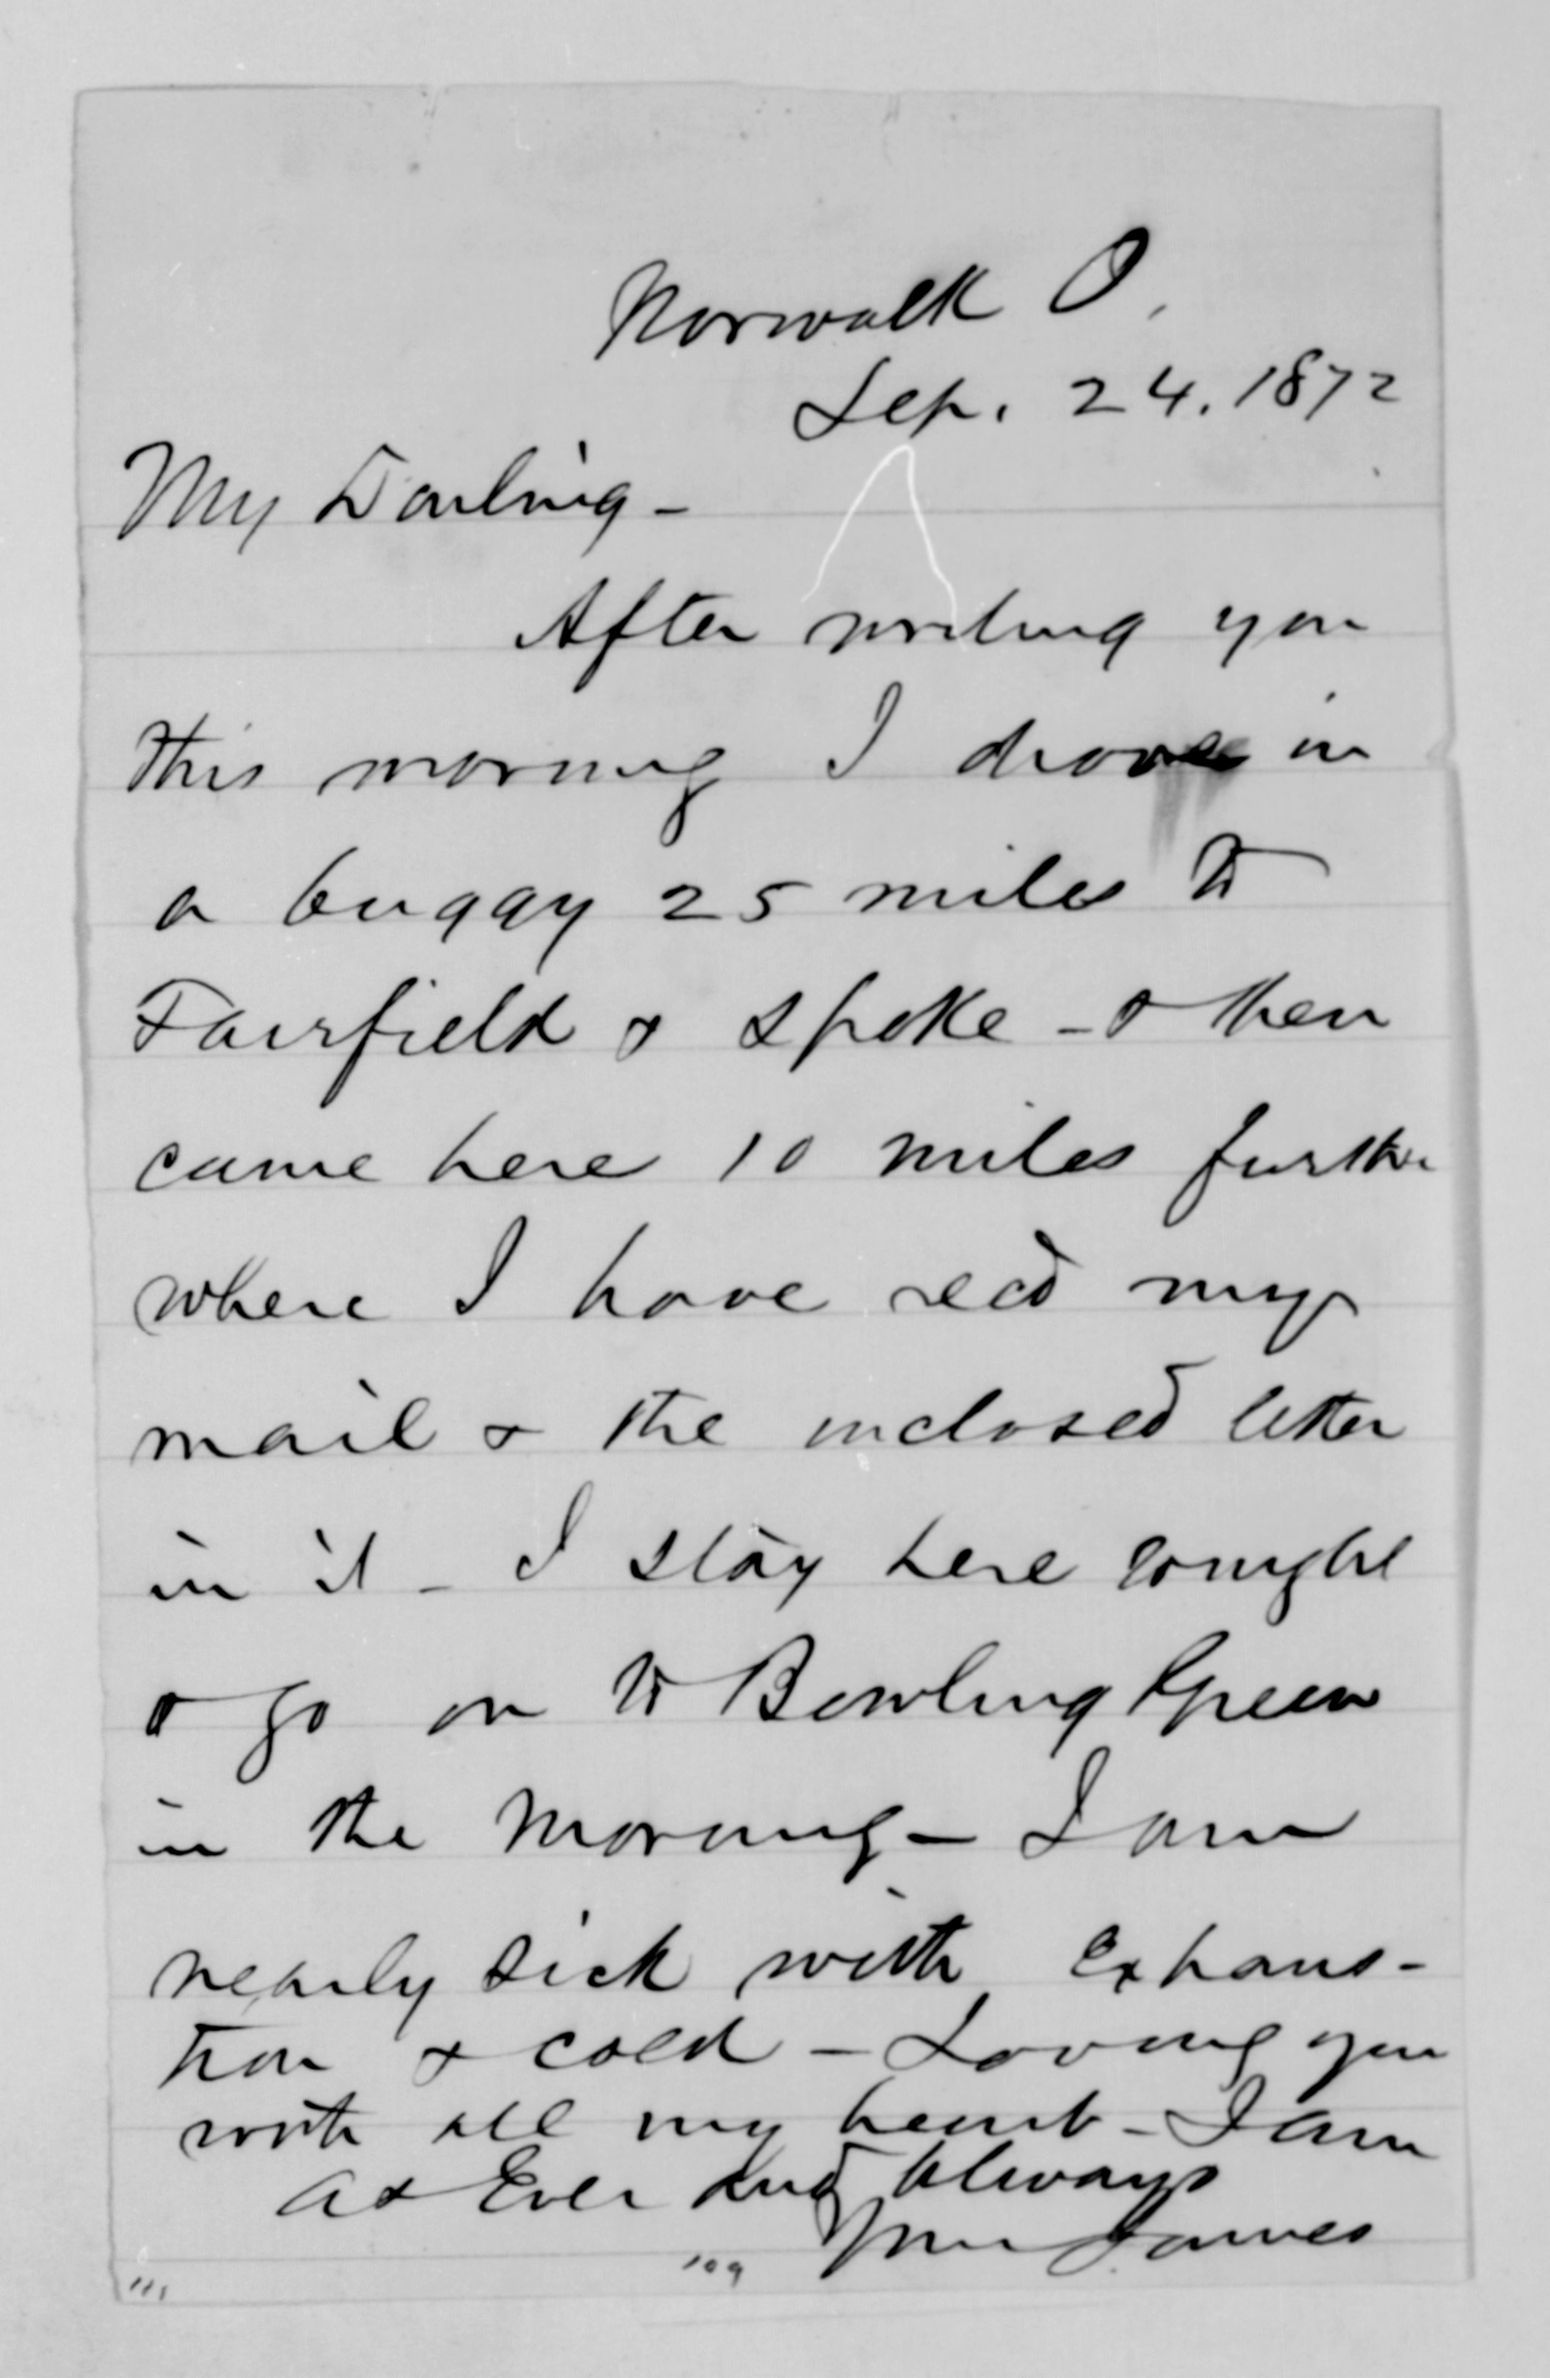 Norwalk O.
Sep. 24. 1872
My Darling -
After writing you
this morning I drove in
a buggy 25 miles to
Fairfield & spoke - & then
came here 10 miles further
where I have recd my
mail & the inclosed letter
in it - I stay here tonight
& go on to Bowling Green
in the morning - I am
nearly sick with exhaus-
tion & cold - Loving you
with all my heart - I am
as Ever and Always
Your James
109
111